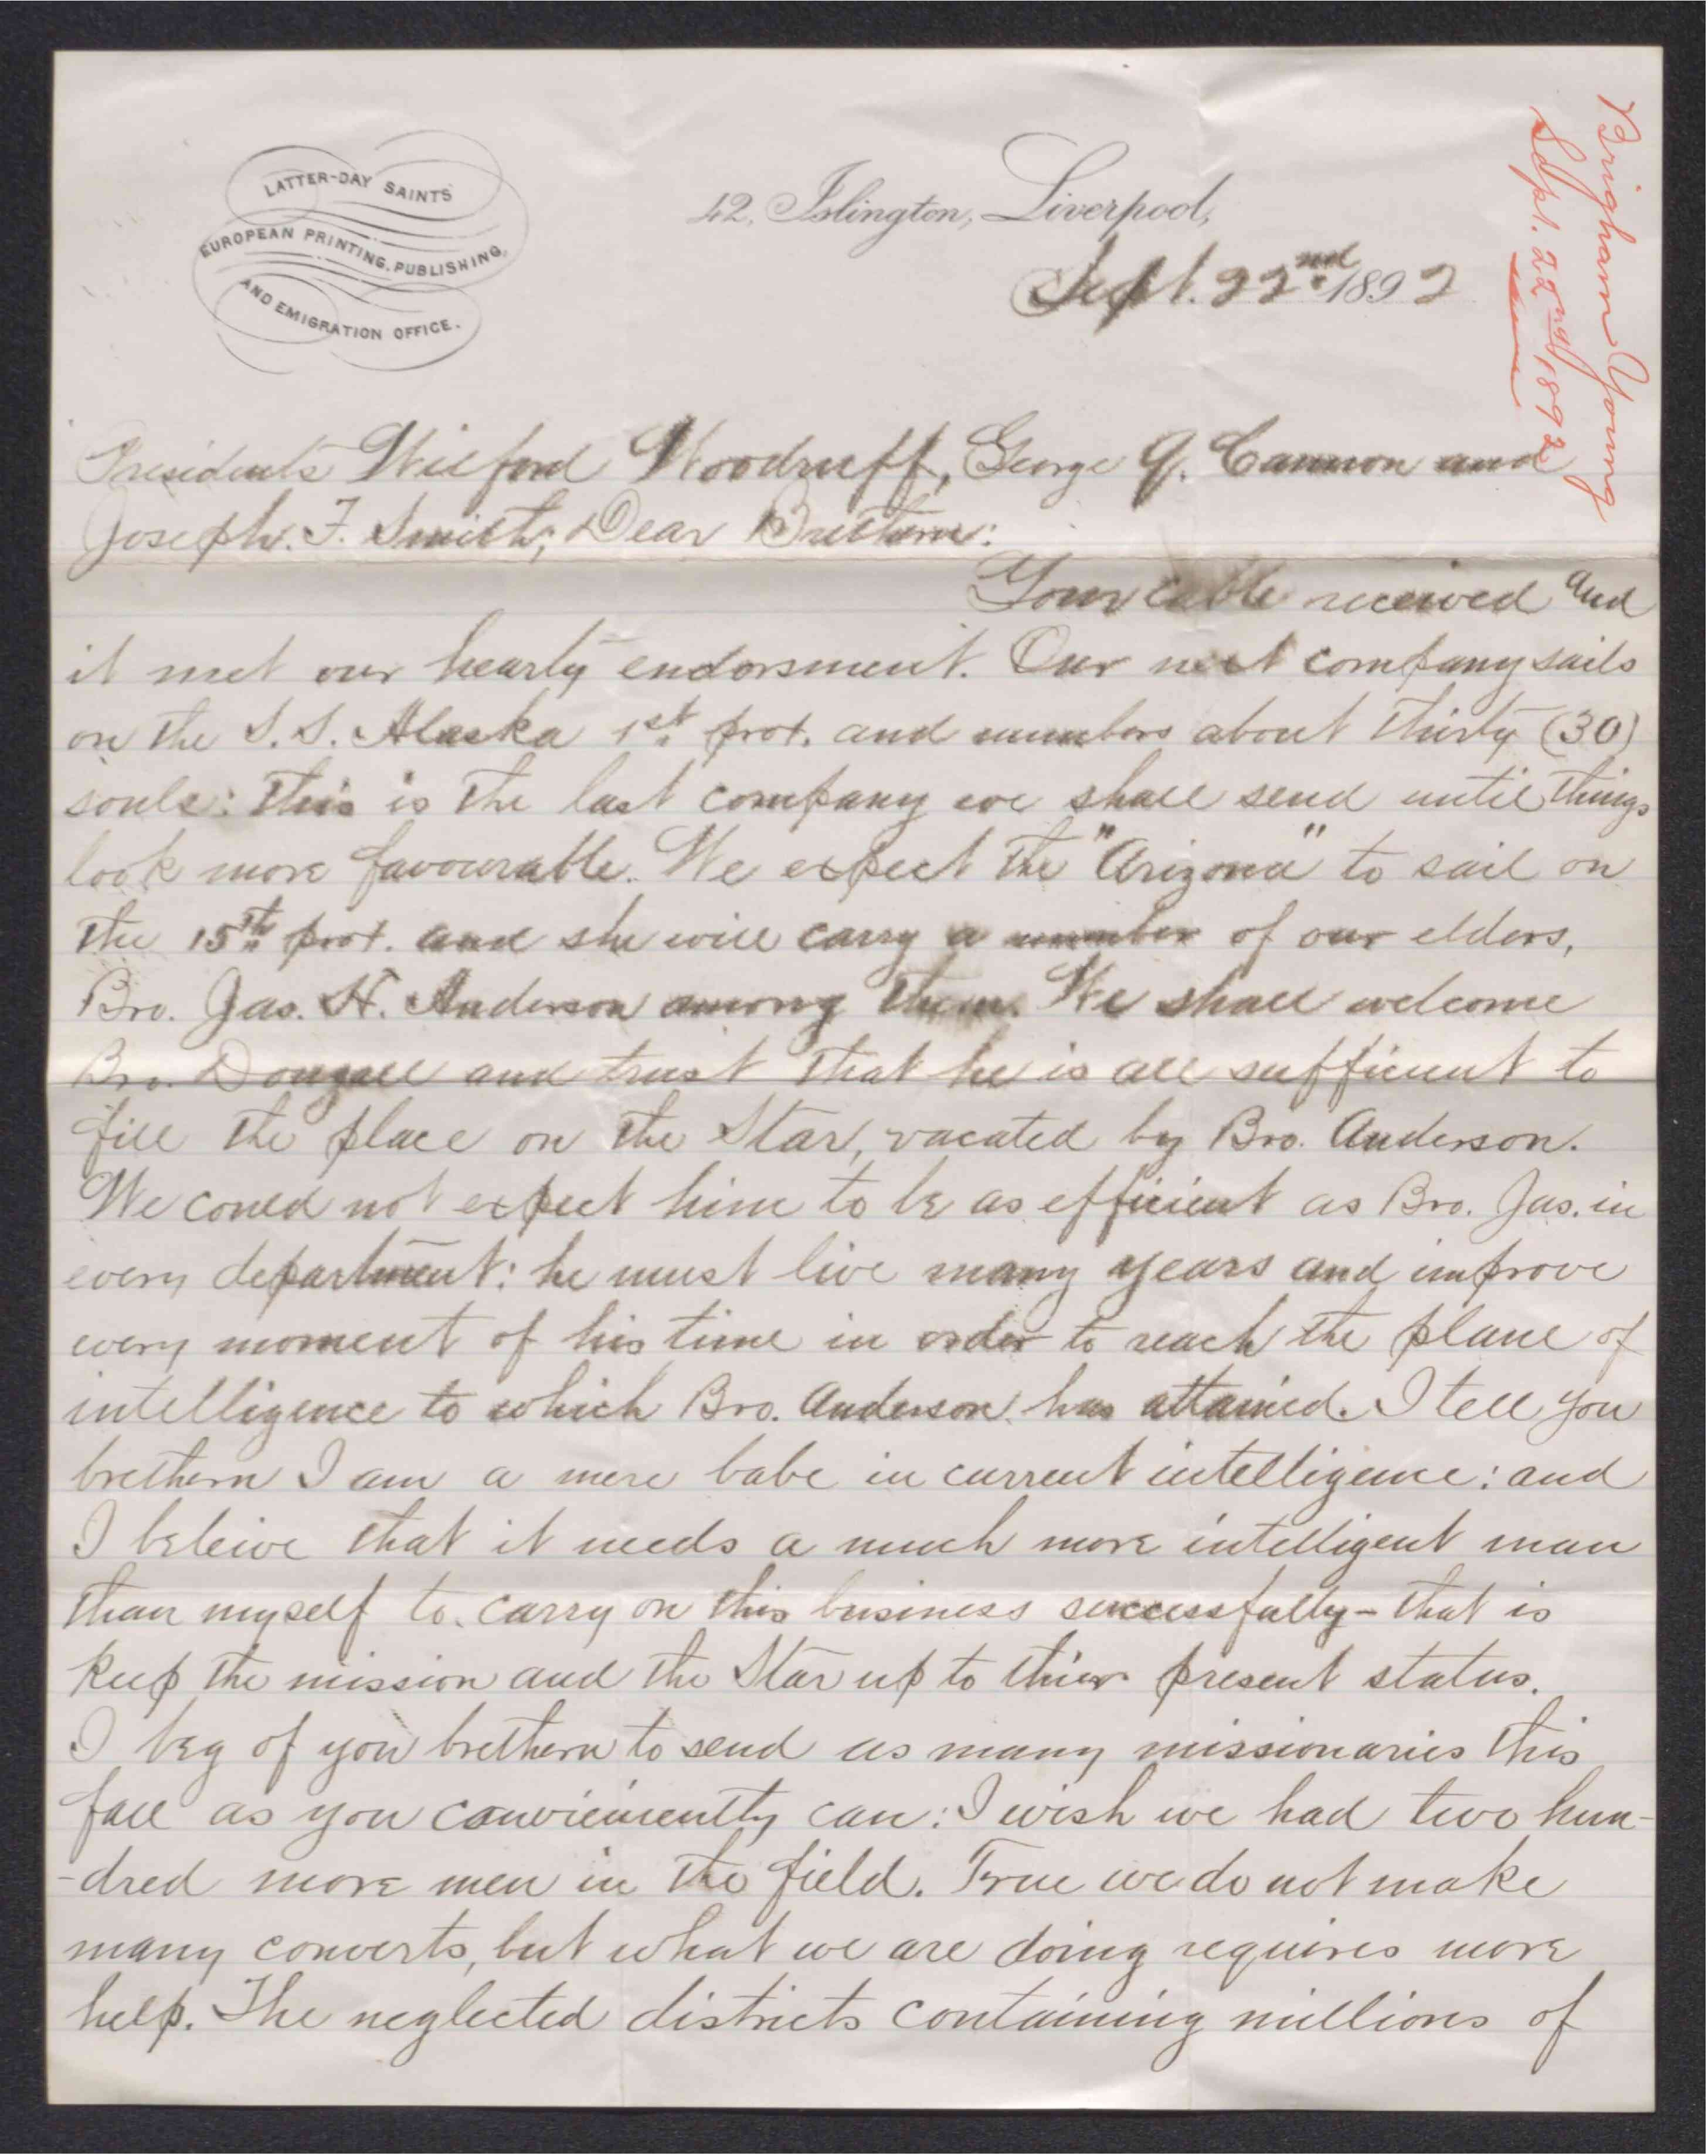 LATTER-DAY SAINTS
EUROPEAN PRINTING, PUBLISHING,
AND EMIGRATION OFFICE.
42, Islington, Liverpool,
Sept. 22nd 1892
Brigham Young
Sept. 22nd 1892
Presidents Wilford Woodruff, George Q. Cannon and
Joseph. F. Smith; Dear Brethern:
Your cable received and
it met our hearty endorsment. Our next company sails
on the S. S. Alaska 1st. prox. and numbers about thirty (30)
souls: this is the last company we shall send until things
look more favourable. We expect the "Arizona" to sail on
the 15th prox. and she will carry a number of our elders,
Bro. Jas. H. Anderson among them. We shall welcome
Bro. Dougall and trust that he is all sufficient to
fill the place on the Star, vacated by Bro. Anderson.
We could not expect him to be as efficient as Bro. Jas. in
every department: he must live many years and improve
every moment of his time in order to reach the plane of
intelligence to which Bro. Anderson has attained. I tell you
brethern I am a mere babe in current intelligence: and
I beleive that it needs a much more intelligent man
than myself to carry on this business successfully - that is
keep the mission and the Star up to thier present status.
I beg of you brethern to send as many missionaries this
fall as you convieniently can: I wish we had two hun-
-dred more men in the field. True we do not make
many converts, but what we are doing requires more
help. The neglected districts containing millions of